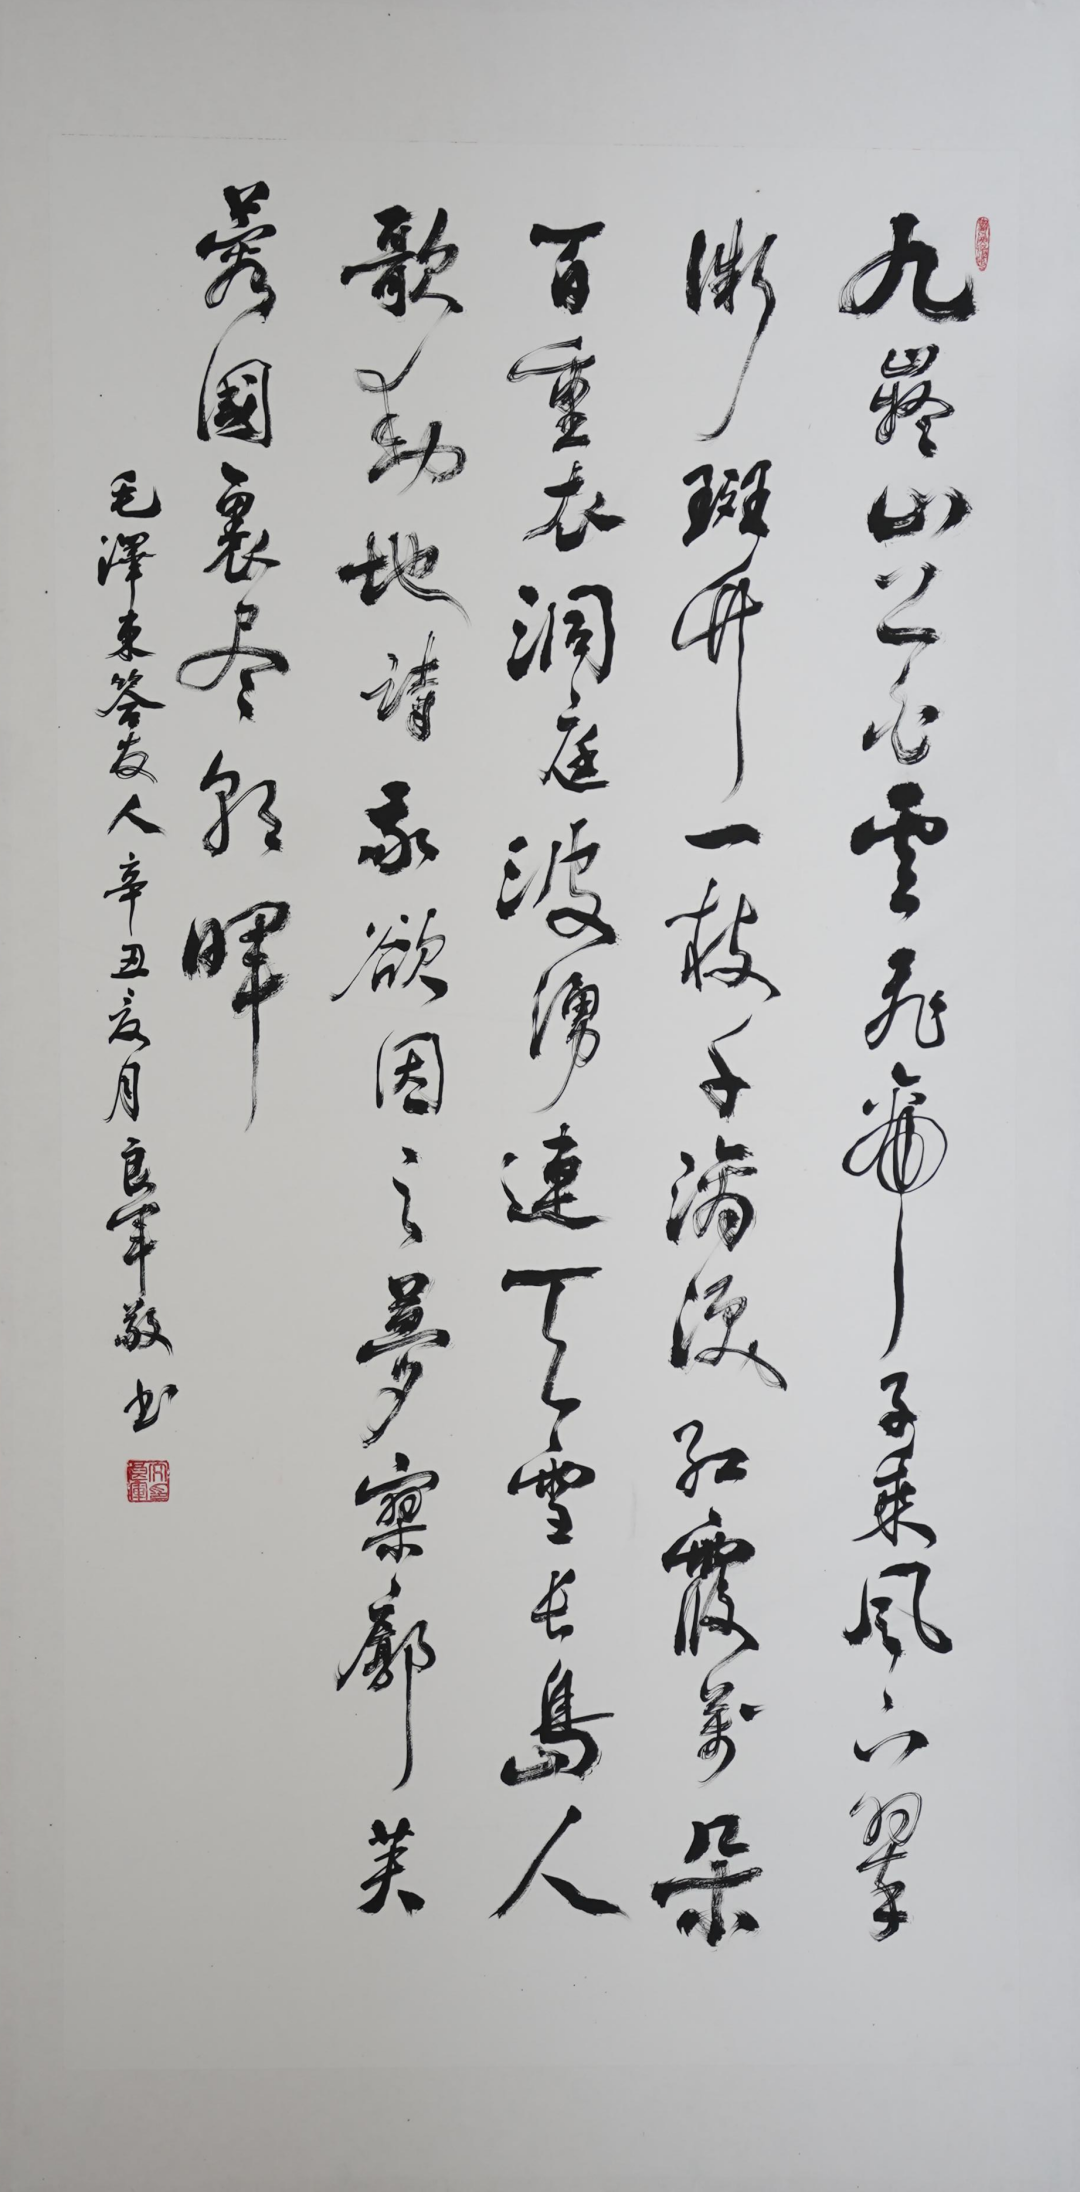 九嶷山上白雲飛帝子乘風下翠
微斑竹一枝千滴淚紅霞萬朵
百重衣洞庭波湧連天雪長島人
歌動地詩我欲因之夢寥廓芙
蓉國裏尽朝暉
毛澤東答友人辛丑夏月良軍敬书